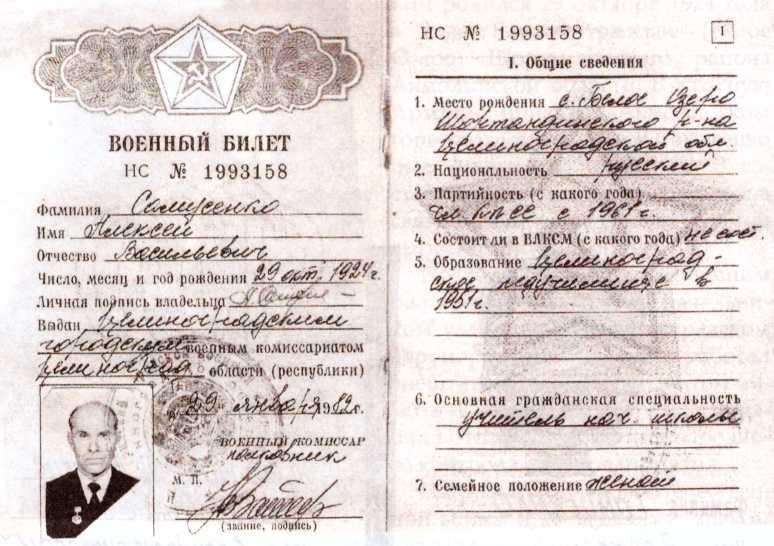 ВОЕННЫЙ БИЛЕТ
НС № 1993158
Фамилия Самусенко
Имя Алексей
Отчество Васильевич
Число, месяц и год рождения 29 окт. 1924 г.
Личная подпись владельца
Выдан Целиноградским
городским военным комиссариатом
Целиноград. области (республики)
29 января 1982 г.
ВОЕННЫЙ КОМИССАР
полковник
М. П.
(звание, подпись)
НС № 1993158
1
I. Общие сведения
1. Место рождения с. Белое Озеро
Шортандинского р-на
Целиноградской обл
2. Национальность русский
3. Партийность (с какого года)
чл. КПСС с 1961 г.
4. Состоит ли в ВЛКСМ (с какого года) не сост.
5. Образование Целиноград-
ское педучилище в
1951 г.
6. Основная гражданская специальность
учитель нач. школы
7. Семейное положение женат